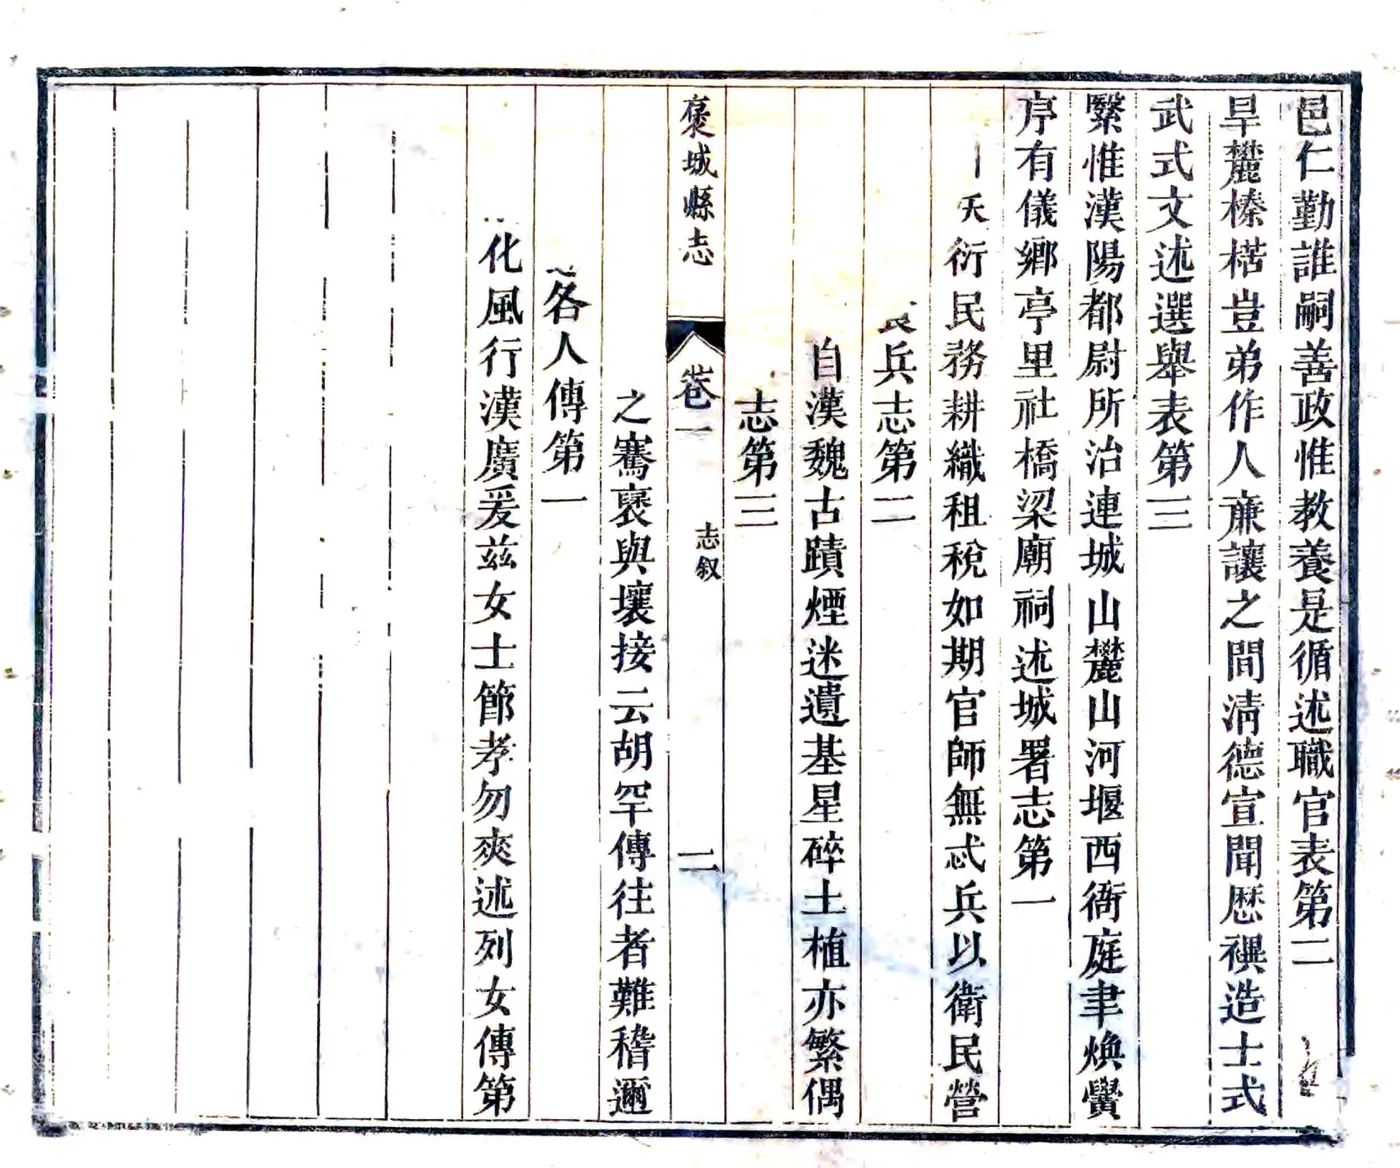 邑仁勤誰嗣善政惟教養是循述職官表第二
旱麓榛楛豈弟作人廉讓之間淸德宣聞歷禩造士式
武式文述選舉表第三
繄惟漢陽都尉所治連城山麓山河堰西衙庭聿煥黌
序有儀鄉亭里社橋梁廟祠述城署志第一
天衍民務耕織租稅如期官師無忒兵以衛民營
兵志第二
自漢魏古蹟煙迷遺基星碎土植亦繁偶
志第三
褒城縣志
卷一
志叙
二
之騫裒與壤接云胡罕傳往者難稽邇
各人傳第一
化風行漢廣爰茲女士節孝勿爽述列女傳第